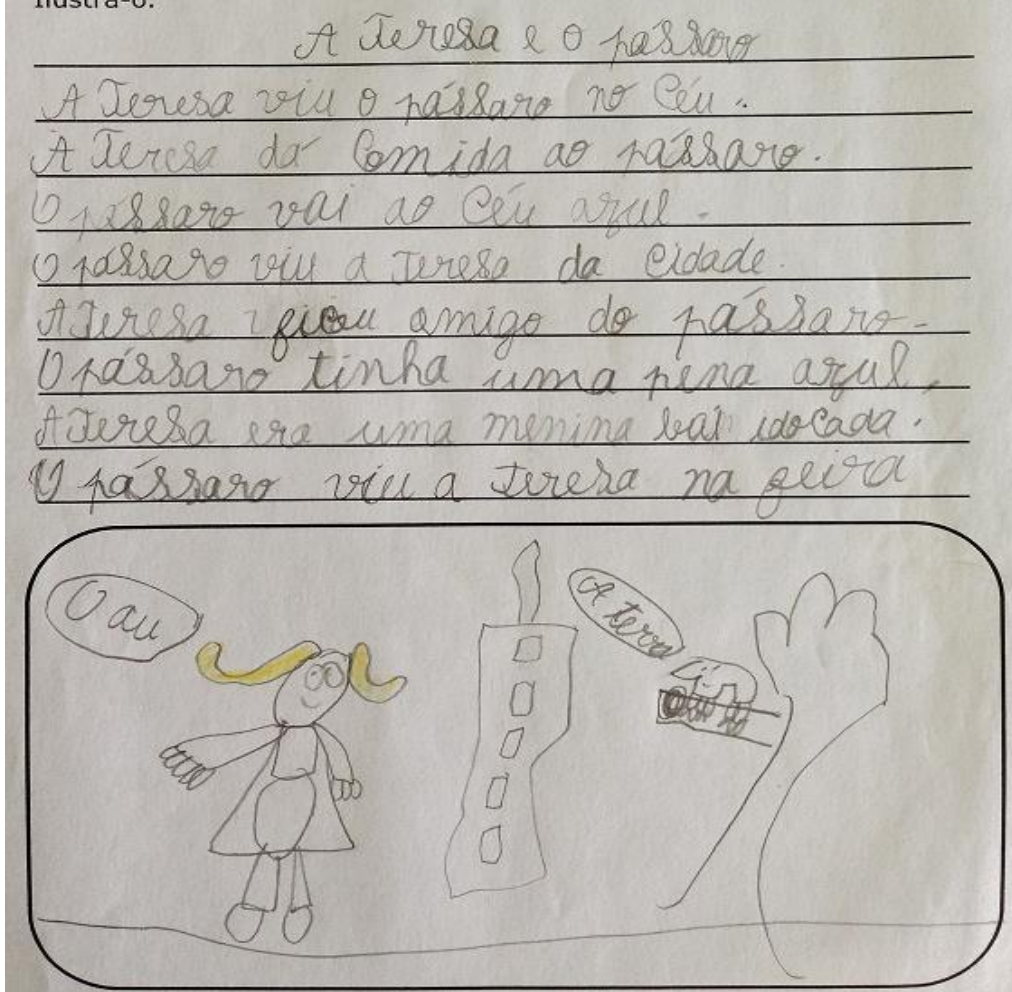 Ilustra-o.
A Teresa e o pássaro
A Teresa viu o pássaro no Céu.
A Teresa dá Comida ao pássaro.
O pássaro vai ao Céu azul.
O pássaro viu a Teresa da Cidade.
A Teresa ficou amigo do pássaro.
O pássaro tinha uma pena azul.
A Teresa era uma menina bai idocada.
O pássaro viu a Teresa na feira
O au
A terra